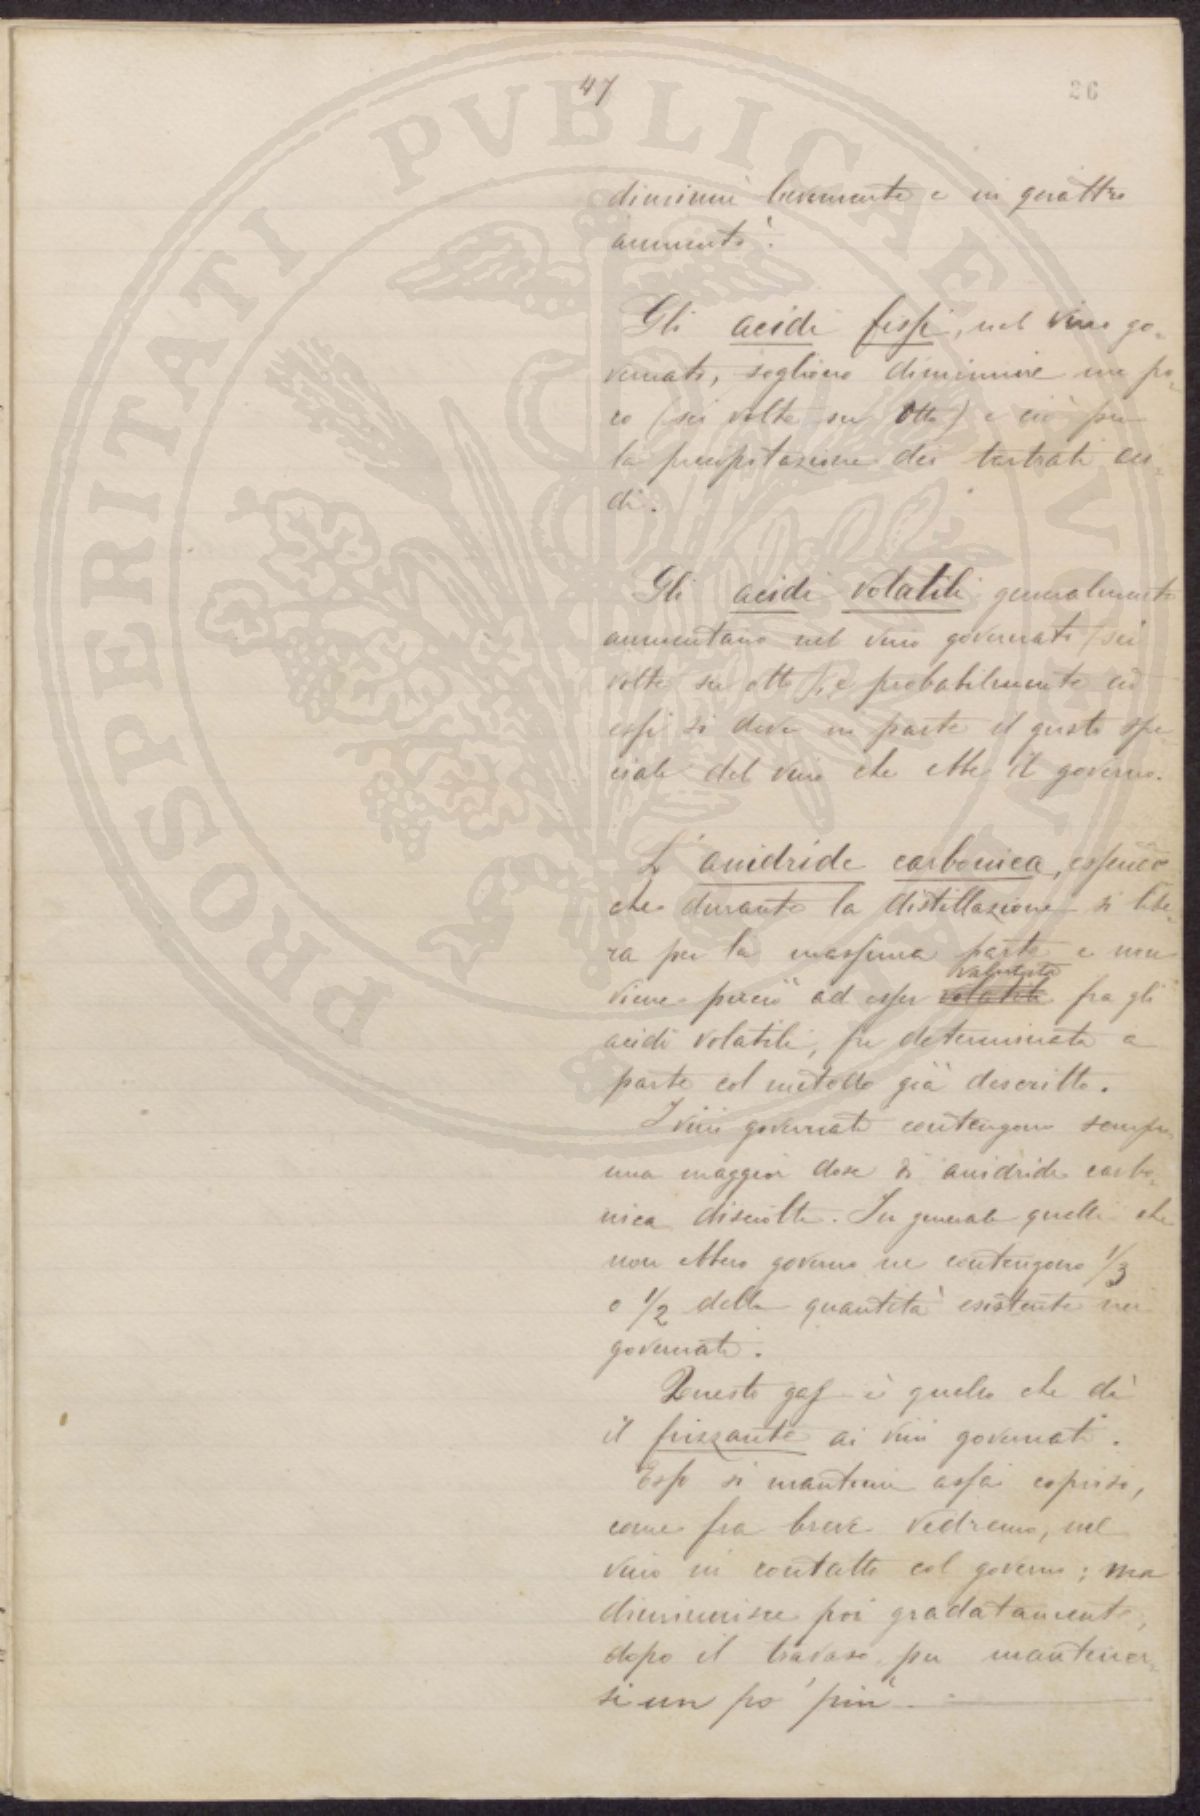 47
26
diminuì lievemente e in quattro
aumentò.
Gli acidi fissi, nel vino go-
vernato, sogliono diminuire un po-
co (sei volte su otto) e ciò per
la precipitazione dei tartrati aci-
di.
Gli acidi volatili generalmente
aumentano nel vino governato (sei
volte su otto) e probabilmente ad
essi si deve in parte il gusto spe-
ciale del vino che ebbe il governo.
L'anidride carbonica, essendo
che durante la distillazione si libe-
ra per la massima parte e non
valutata
viene perciò ad esser volatile fra gli
acidi volatili, fu determinata a
parte col metodo già descritto.
I vini governati contengono sempre
una maggior dose di anidride carbo-
nica disciolta. In generale quelli che
non ebbero governo ne contengono 1/3
o 1/2 della quantità esistente nei
governati.
Questo gas è quello che dà
il frizzante ai vini governati.
Esso si mantiene assai copioso,
come fra breve vedremo, nel
vino in contatto col governo; ma
diminuisce poi gradatamente,
dopo il travaso per mantener-
si un po' più.
PROSPERITATI PVBLICAE AVGENDAE